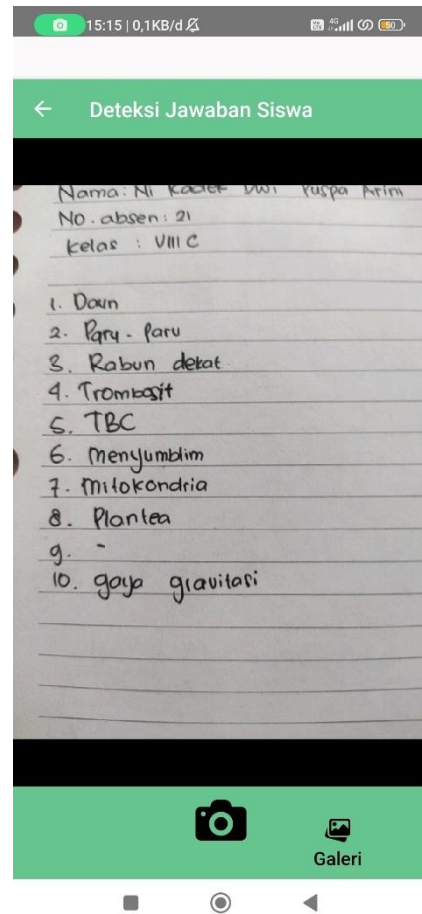 15:15 | 0,1KB/d
4G
50
Deteksi Jawaban Siswa
Nama: Ni Kadek Dwi Puspa Arini
No. absen: 21
Kelas : VIII C
1. Daun
2. Paru - Paru
3. Rabun dekat.
4. Trombosit
5. TBC
6. Menyumblim
7. Mitokondria
8. Plantea
9. -
10. gaya gravitasi
Galeri